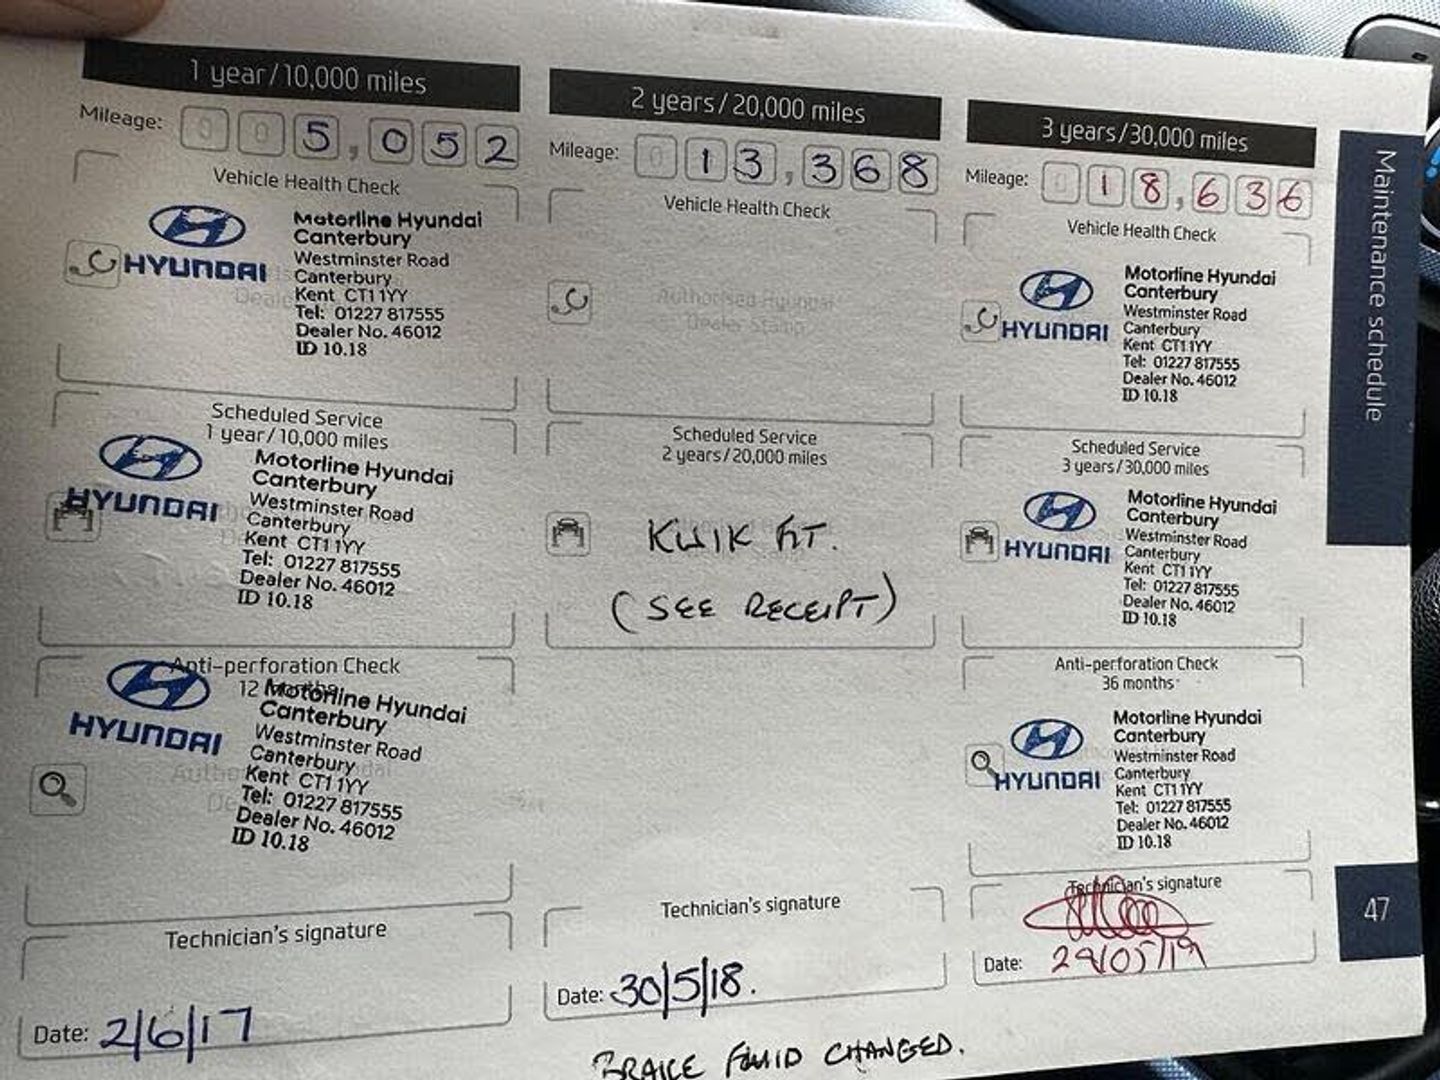 1 year/10,000 miles
Mileage: 005,052
Vehicle Health Check
HYUNDAI
Motorline Hyundai
Canterbury
Westminster Road
Canterbury
Kent CT1 1YY
Tel: 01227 817555
Dealer No. 46012
ID 10.18
Scheduled Service
1 year/10,000 miles
HYUNDAI
Motorline Hyundai
Canterbury
Westminster Road
Canterbury
Kent CT1 1YY
Tel: 01227 817555
Dealer No. 46012
ID 10.18
Anti-perforation Check
12 months
HYUNDAI
Motorline Hyundai
Canterbury
Westminster Road
Canterbury
Kent CT1 1YY
Tel: 01227 817555
Dealer No. 46012
ID 10.18
Technician's signature
Date: 2/6/17
2 years/20,000 miles
Mileage: 013,368
Vehicle Health Check
Authorised Hyundai
Dealer Stamp
Scheduled Service
2 years/20,000 miles
KWIK FIT.
(SEE RECEIPT)
Technician's signature
Date: 30/5/18.
BRAKE FLUID CHANGED.
3 years/30,000 miles
Mileage: 018,636
Vehicle Health Check
HYUNDAI
Motorline Hyundai
Canterbury
Westminster Road
Canterbury
Kent CT1 1YY
Tel: 01227 817555
Dealer No. 46012
ID 10.18
Scheduled Service
3 years/30,000 miles
HYUNDAI
Motorline Hyundai
Canterbury
Westminster Road
Canterbury
Kent CT1 1YY
Tel: 01227 817555
Dealer No. 46012
ID 10.18
Anti-perforation Check
36 months
HYUNDAI
Motorline Hyundai
Canterbury
Westminster Road
Canterbury
Kent CT1 1YY
Tel: 01227 817555
Dealer No. 46012
ID 10.18
Technician's signature
Date: 29/05/19
Maintenance schedule
47